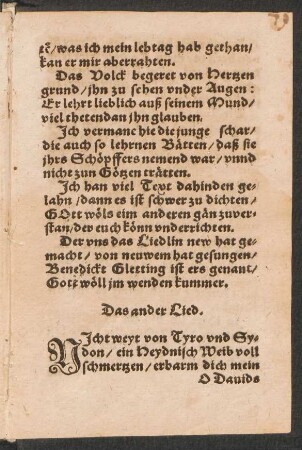 tẽ/was ich mein lebtag hab gethan/
kan er mir aberrahten.
Das Volck begeret von Hertzen
grund/jhn zu sehen vnder Augen:
Er lehrt lieblich auß seinem Mund/
viel thetendan jhn glauben.
Ich vermane hie die junge schar/
die auch so lehrnen Bätten/daß sie
jhrs Schöpffers nemend war/vnnd
nicht zun Götzen trätten.
Ich han viel Text dahinden ge-
lahn/dann es ist schwer zu dichten/
GOtt wöls eim anderen gän zuver-
stan/der euch könn vnderrichten.
Der vns das Liedlin new hat ge-
macht/von neuwem hat gesungen/
Benedickt Gletting ist ers genant/
Gott wöll jm wenden kummer.
Das ander Lied.
NIcht weyt von Tyro vnd Sy-
don/ein Heydnisch Weib voll
schmertzen/erbarm dich mein
O Dauids